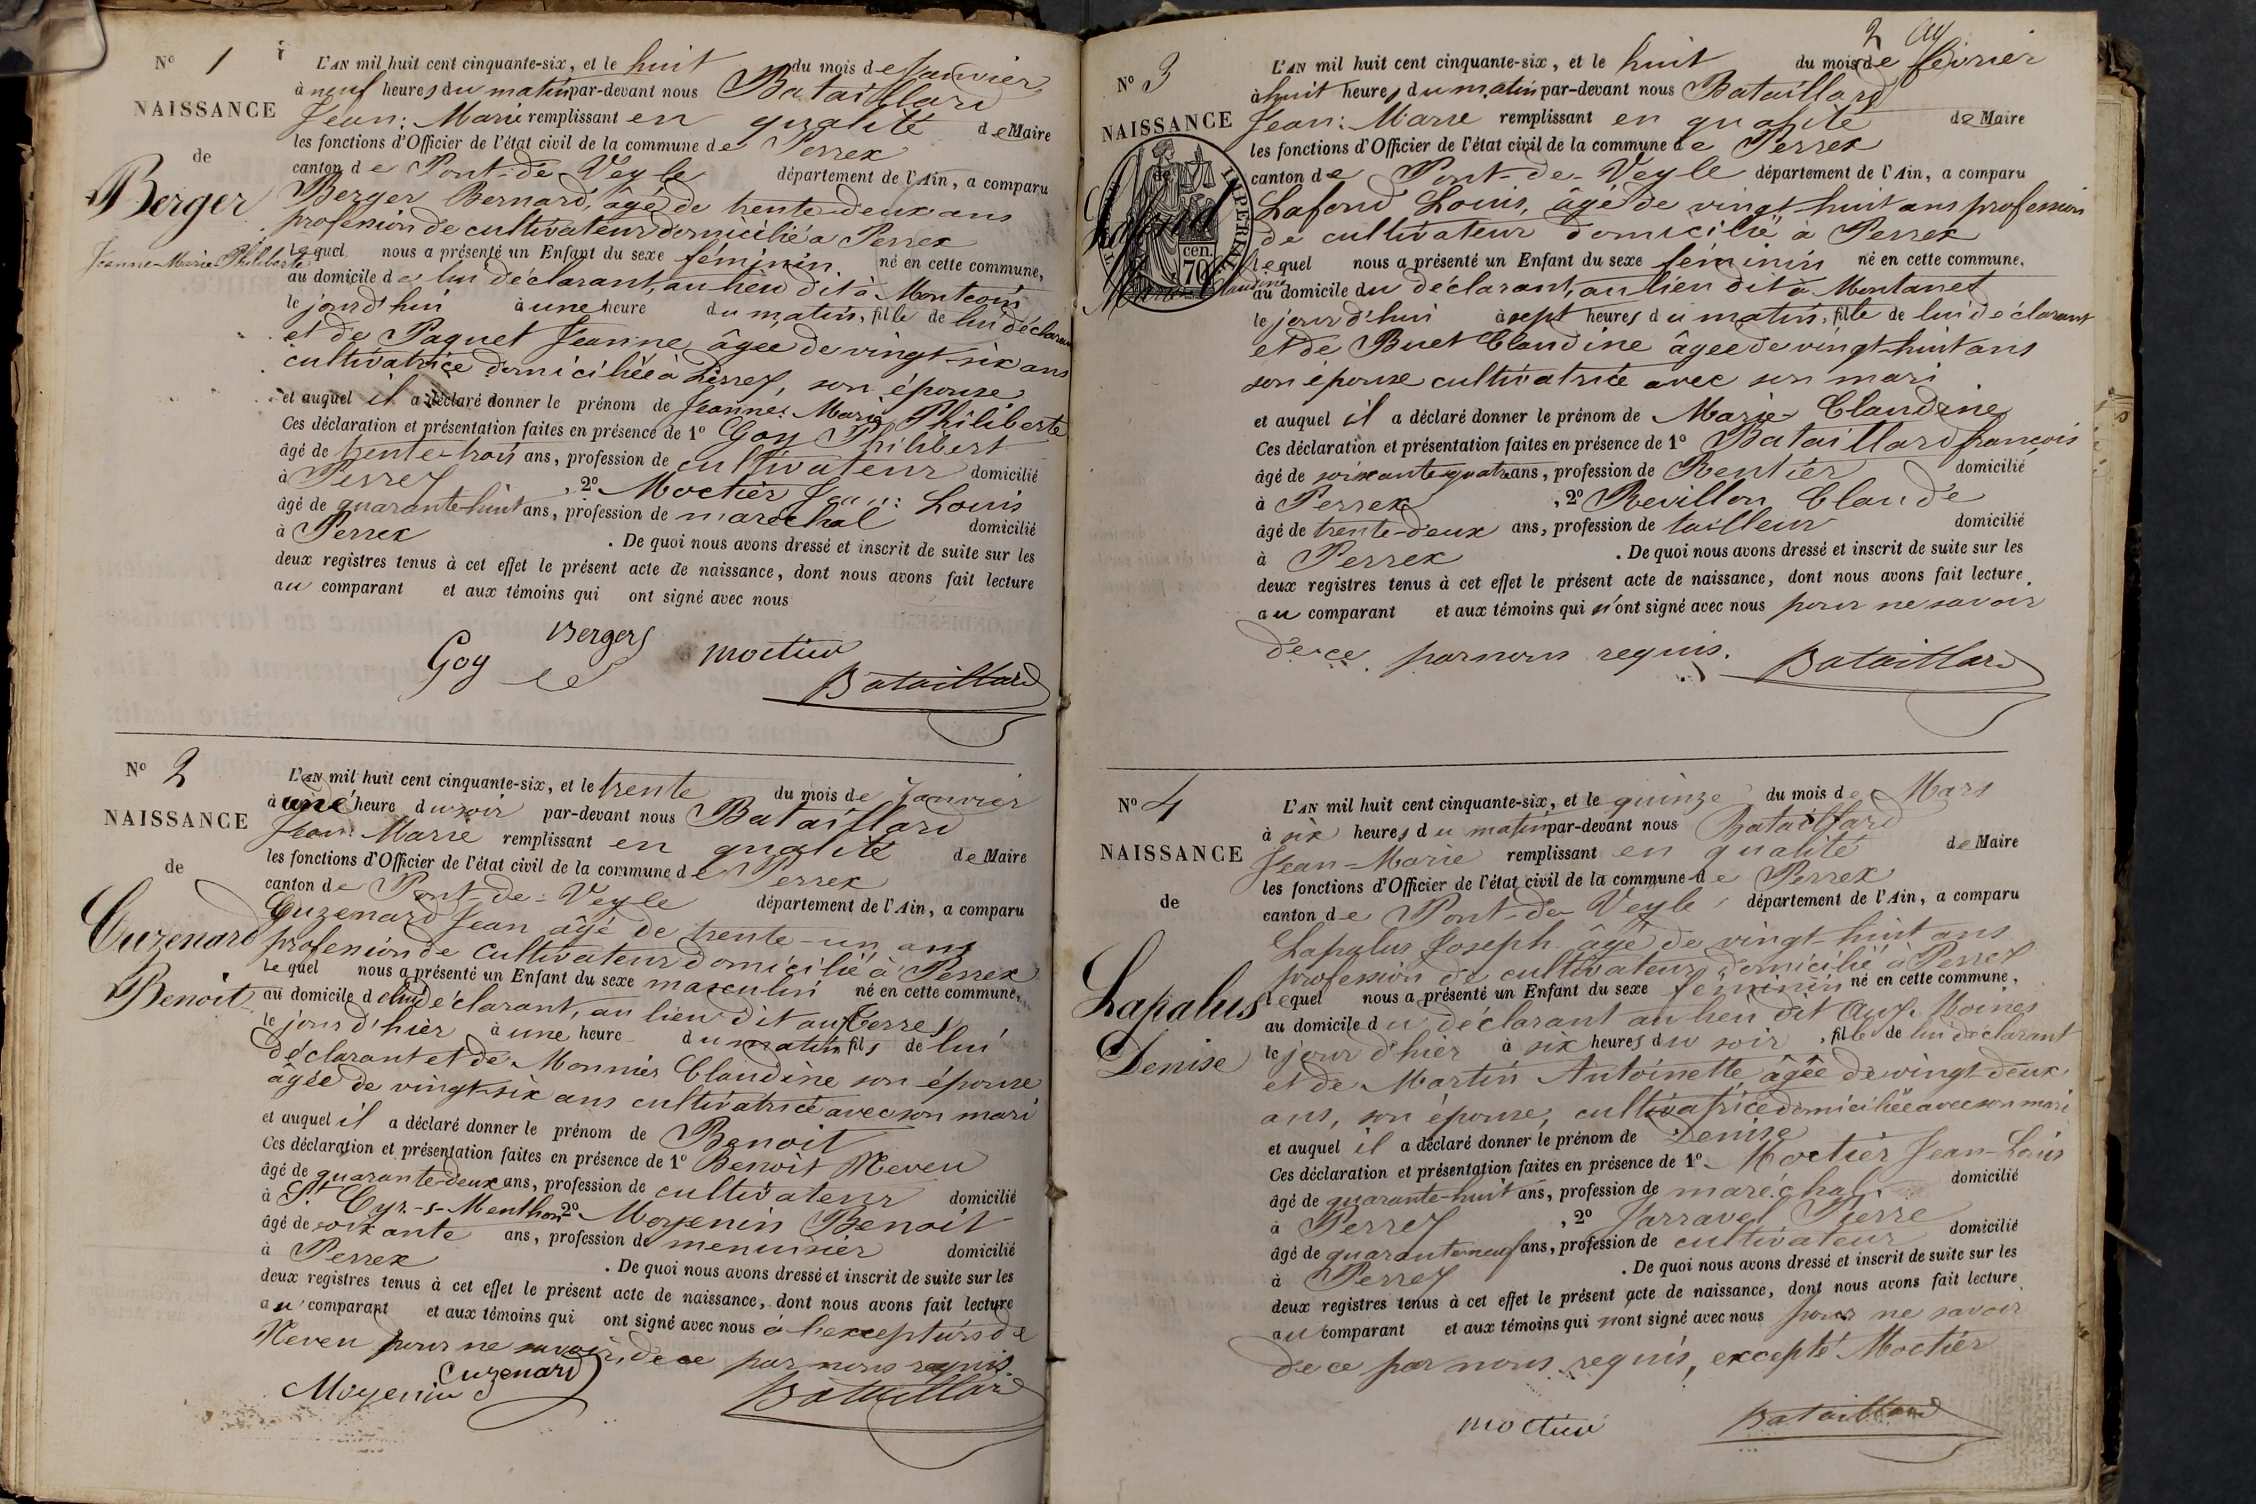 N° 1
NAISSANCE
de
Berger
Jeanne-Marie Philiberte
L'AN mil huit cent cinquante-six, et le huit du mois de Janvier
à neuf heures du matin par-devant nous Bataillard
Jean: Marie remplissant en qualité de Maire
les fonctions d'Officier de l'état civil de la commune de Perrex
canton de Pont-de-Veyle département de l'Ain, a comparu
Berger Bernard, âgé de trente-deux ans
profession de cultivateur domicilié a Perrex
lequel nous a présenté un Enfant du sexe féminin né en cette commune,
au domicile de lui déclarant, au lieu dit à Montcoin
le jourd'hui à une heure du matin, fille de lui déclarant
et de Paquet Jeanne, âgée de vingt-six ans
cultivatrice domiciliée à Perrex, son épouse
et auquel il a déclaré donner le prénom de Jeanne: Marie Philiberte
Ces déclaration et présentation faites en présence de 1° Goy Philibert
âgé de trente-trois ans, profession de cultivateur domicilié
à Perrex, 2° Moctier Jean: Louis
âgé de quarante-huit ans, profession de maréchal domicilié
à Perrex . De quoi nous avons dressé et inscrit de suite sur les
deux registres tenus à cet effet le présent acte de naissance, dont nous avons fait lecture
au comparant et aux témoins qui ont signé avec nous
Goy Berger Moctier
Bataillard
N° 2
NAISSANCE
de
Cuzenard
Benoit
L'AN mil huit cent cinquante-six, et le trente du mois de Janvier
à une heure du soir par-devant nous Bataillard
Jean: Marie remplissant en qualité de Maire
les fonctions d'Officier de l'état civil de la commune de Perrex
canton de Pont-de-Veyle département de l'Ain, a comparu
Cuzenard Jean âgé de trente-un ans
profession de cultivateur domicilié à Perrex
lequel nous a présenté un Enfant du sexe masculin né en cette commune,
au domicile de lui déclarant, au lieu dit aux Terres
le jour d'hier à une heure du matin fils de lui
déclarant et de Monnier Claudine son épouse
âgée de vingt-six ans cultivatrice avec son mari
et auquel il a déclaré donner le prénom de Benoit
Ces déclaration et présentation faites en présence de 1° Benoit Neveu
âgé de quarante-deux ans, profession de cultivateur domicilié
à St Cyr-s-Menthon 2° Moyenin Benoit
âgé de soixante ans, profession de menuisier domicilié
à Perrex . De quoi nous avons dressé et inscrit de suite sur les
deux registres tenus à cet effet le présent acte de naissance, dont nous avons fait lecture
au comparant et aux témoins qui ont signé avec nous à l'exception de
Neveu pour ne savoir, de ce par nous requis
Cuzenard
Moyenin Bataillard
2
N° 3
NAISSANCE
de
Lafond
Marie-Claudine
IMPERIAL
70 cen.
L'AN mil huit cent cinquante-six, et le huit du mois de février
à huit heures du matin par-devant nous Bataillard
Jean: Marie remplissant en qualité de Maire
les fonctions d'Officier de l'état civil de la commune de Perrex
canton de Pont-de-Veyle département de l'Ain, a comparu
Lafond Louis, âgé de vingt-huit ans profession
de cultivateur domicilié a Perrex
lequel nous a présenté un Enfant du sexe féminin né en cette commune,
au domicile du déclarant, au lieu dit à Montanet
le jour d'hui à sept heures du matin, fille de lui déclarant
et de Buet Claudine âgée de vingt-huit ans
son épouse cultivatrice avec son mari
et auquel il a déclaré donner le prénom de Marie-Claudine
Ces déclaration et présentation faites en présence de 1° Bataillard françois
âgé de soixante-quatre ans, profession de Rentier domicilié
à Perrex, 2° Revillon Claude
âgé de trente-deux ans, profession de tailleur domicilié
à Perrex . De quoi nous avons dressé et inscrit de suite sur les
deux registres tenus à cet effet le présent acte de naissance, dont nous avons fait lecture
au comparant et aux témoins qui n'ont signé avec nous pour ne savoir
de ce par nous requis. Bataillard
N° 4
NAISSANCE
de
Lapalus
Denise
L'AN mil huit cent cinquante-six, et le quinze du mois de Mars
à six heures du matin par-devant nous Bataillard
Jean-Marie remplissant en qualité de Maire
les fonctions d'Officier de l'état civil de la commune de Perrex
canton de Pont-de-Veyle département de l'Ain, a comparu
Lapalus Joseph âgé de vingt-huit ans
profession de cultivateur domicilié à Perrex
lequel nous a présenté un Enfant du sexe féminin né en cette commune,
au domicile du déclarant au lieu dit Aux Moines
le jour d'hier à six heures du soir, fille de lui déclarant
et de Martin Antoinette âgée de vingt-deux
ans, son épouse, cultivatrice domiciliée avec son mari
et auquel il a déclaré donner le prénom de Denise
Ces déclaration et présentation faites en présence de 1° Moctier Jean-Louis
âgé de quarante-huit ans, profession de maréchal domicilié
à Perrex, 2° Jarravel Pierre
âgé de quarante-neuf ans, profession de cultivateur domicilié
à Perrex . De quoi nous avons dressé et inscrit de suite sur les
deux registres tenus à cet effet le présent acte de naissance, dont nous avons fait lecture
au comparant et aux témoins qui n'ont signé avec nous pour ne savoir
de ce par nous requis, excepté Moctier
Moctier Bataillard